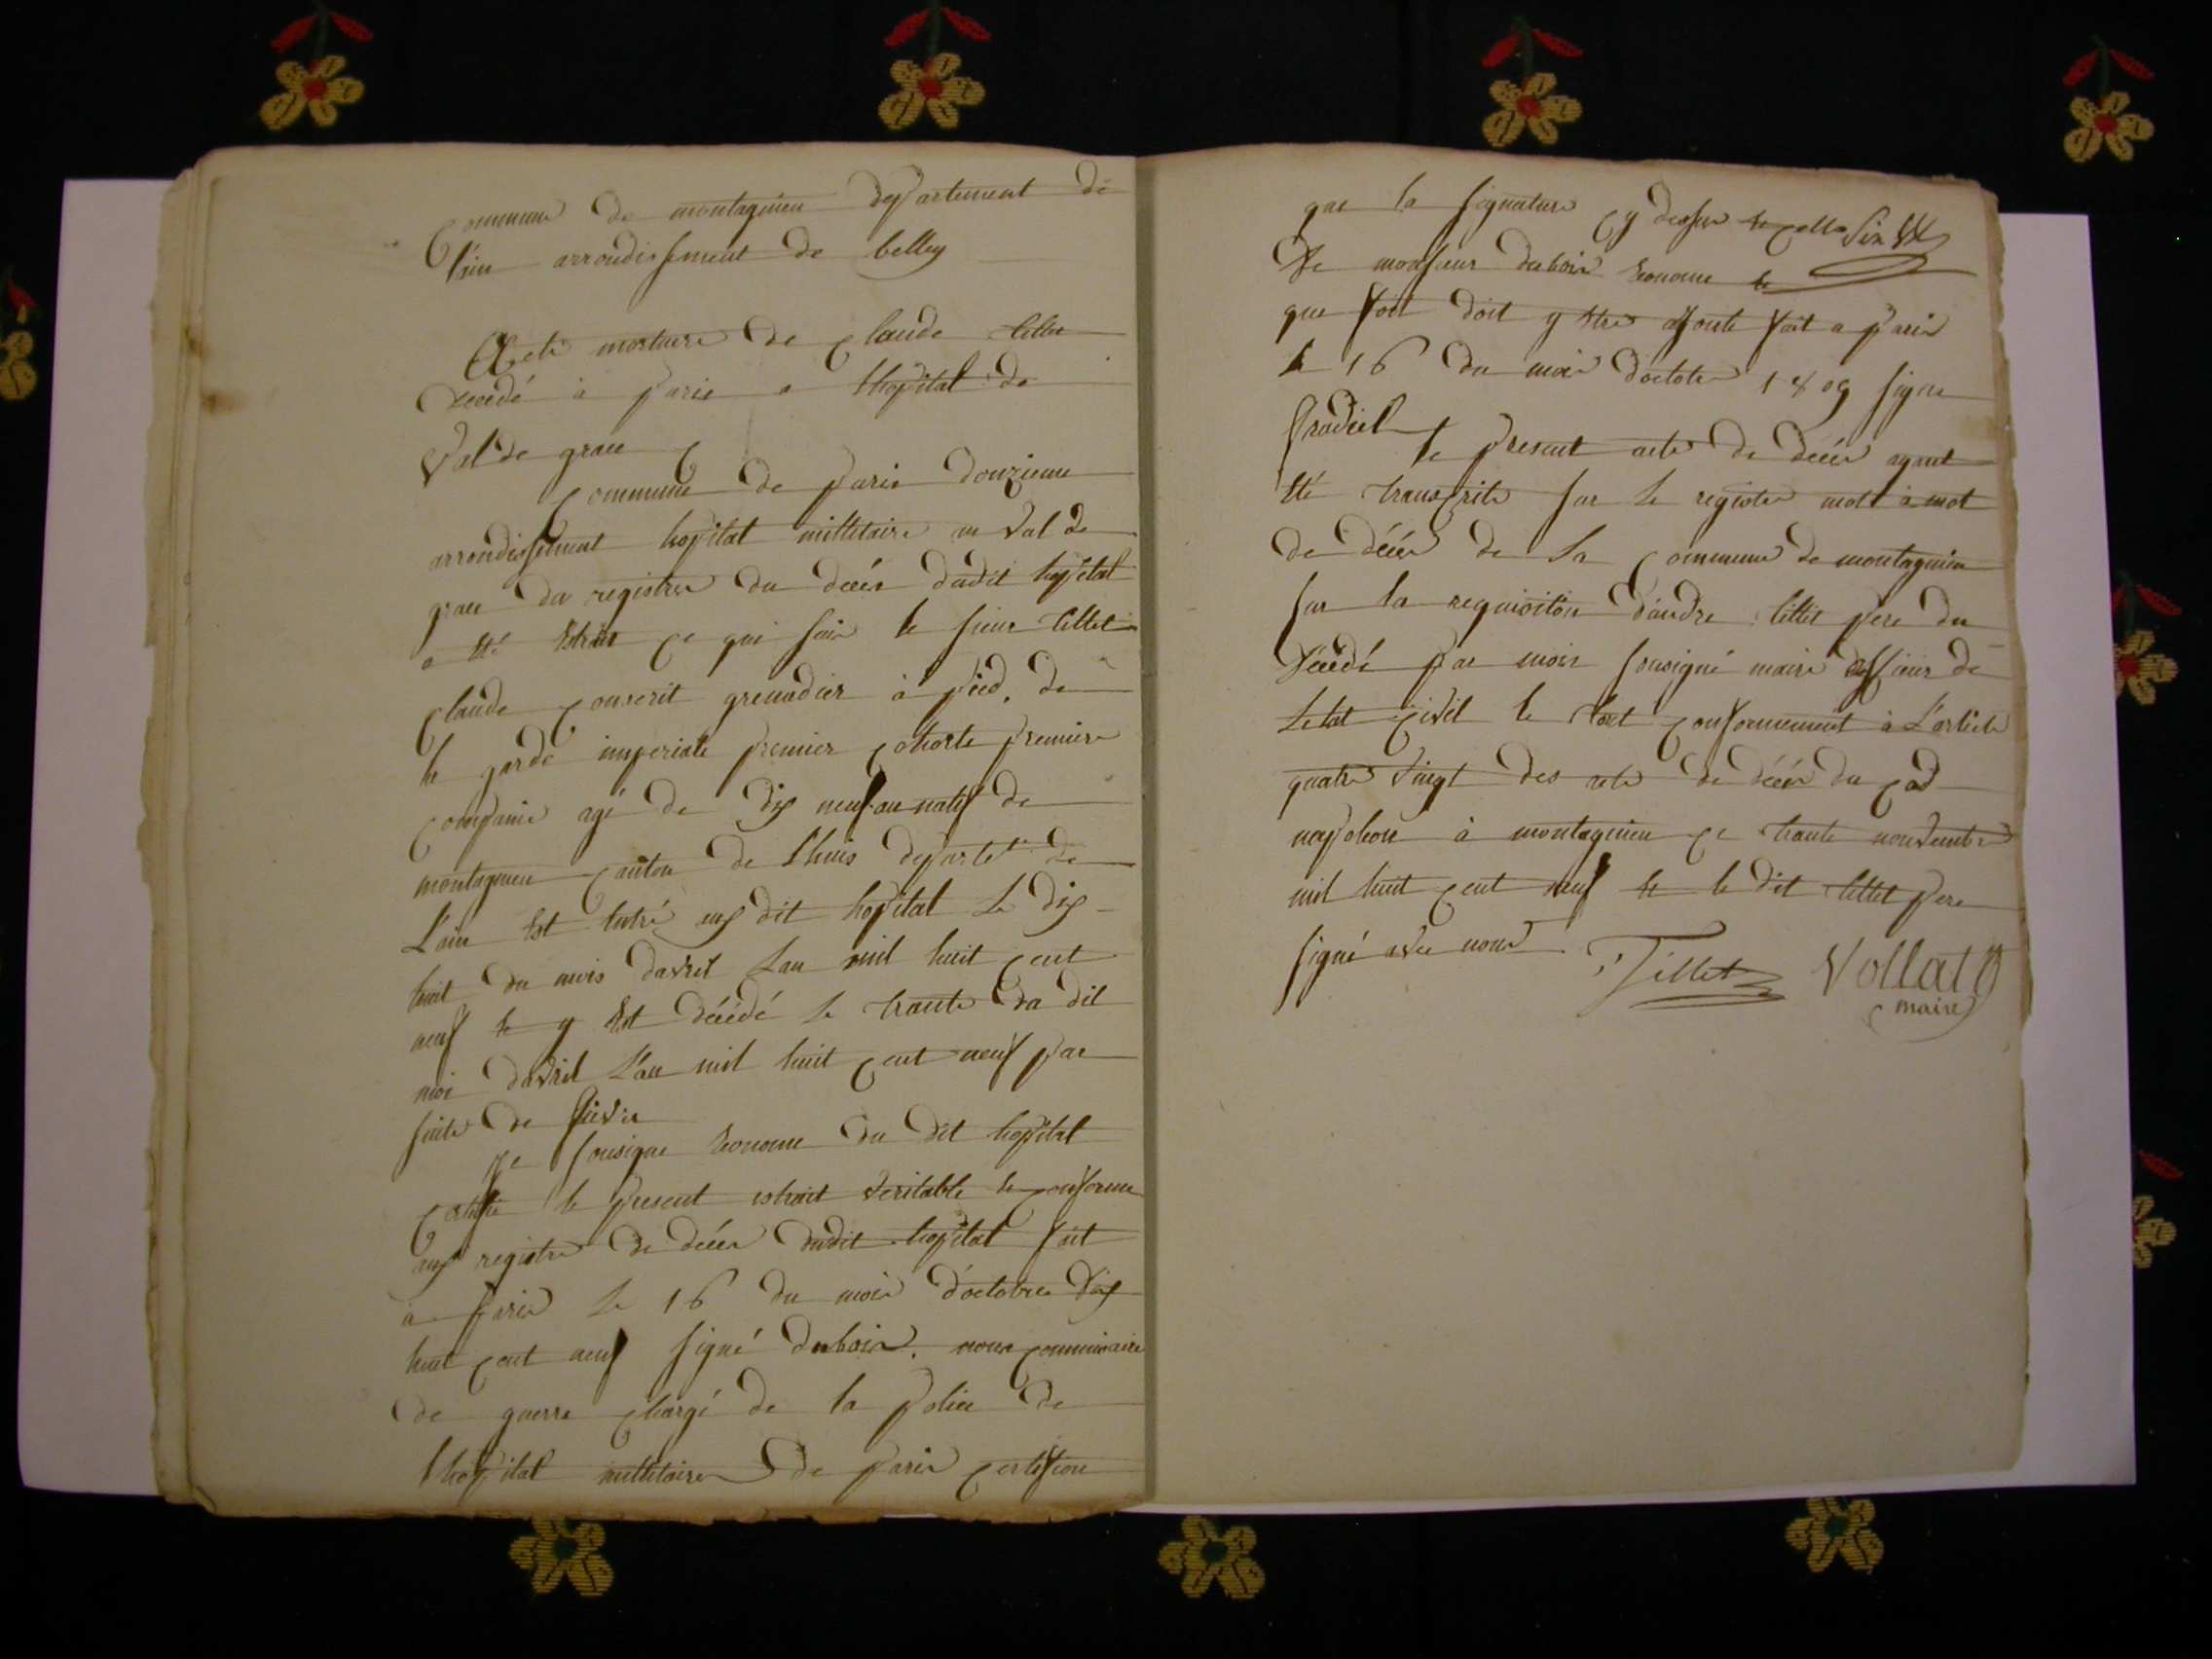 Commune de montagnieu departement de
l'ain arrondissement de belley
Acte mortuere de Claude tillet
decedé à paris a lhopital de
Val de grace
Commune de paris douzieme
arrondissement hopital millitaire au val de
grace du registre du décés dudit hopital
a été extrait ce qui suis le sieur tillet
Claude conscrit grenadier à pied de
la garde imperiale premier cohorte premiere
companie agé de dix neuf an natif de
montagnieu canton de Lhuis departet de
L'ain est entré aux dit hopital le dix
huit du mois davril Lan mil huit cent
neuf et y est décédé le trante du dit
moi davril L'an mil huit cent neuf par
suite de fievre
je sousigne econome du dit hopital
certifie le present extrait veritable et conforme
aux registre de décés dudit hopital fait
a paris le 16 du mois d'octobre dix
huit cent neuf signé dubois. nous commissaire
de guerre chargé de la police de
l'hopital millitaire de paris certifion
que la signature cy dessus et celle
de monsieur dubois econome et
que foit doit y etre ajoute fait a paris
le 16 du mois d'octobre 1809 signe
pradiel le present acte de décés ayant
été transcrite sur le registre mot à mot
de décés de la commune de montagnieu
sur la requisition d'andre tillet pere du
décédé par mois sousigné maire officier de
letat civil le tout conformement à L'article
quatre vingt des acte de décés du cod
napoleon à montagnieu ce trante nouvembre
mil huit cent neuf et le dit tillet pere
signé avec nous Tillet Vollat
maire